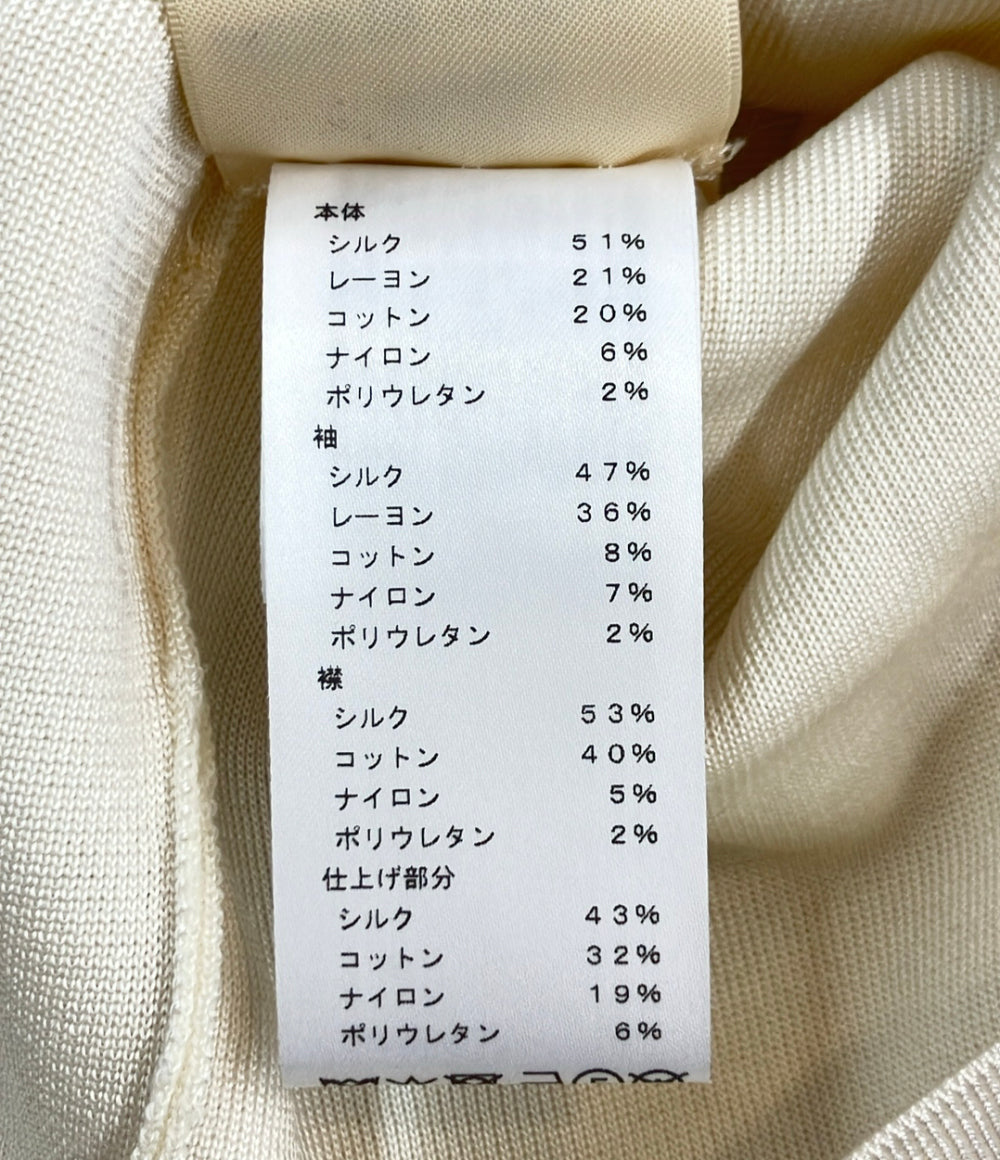 本体
シルク 51%
レーヨン 21%
コットン 20%
ナイロン 6%
ポリウレタン 2%
袖
シルク 47%
レーヨン 36%
コットン 8%
ナイロン 7%
ポリウレタン 2%
襟
シルク 53%
コットン 40%
ナイロン 5%
ポリウレタン 2%
仕上げ部分
シルク 43%
コットン 32%
ナイロン 19%
ポリウレタン 6%